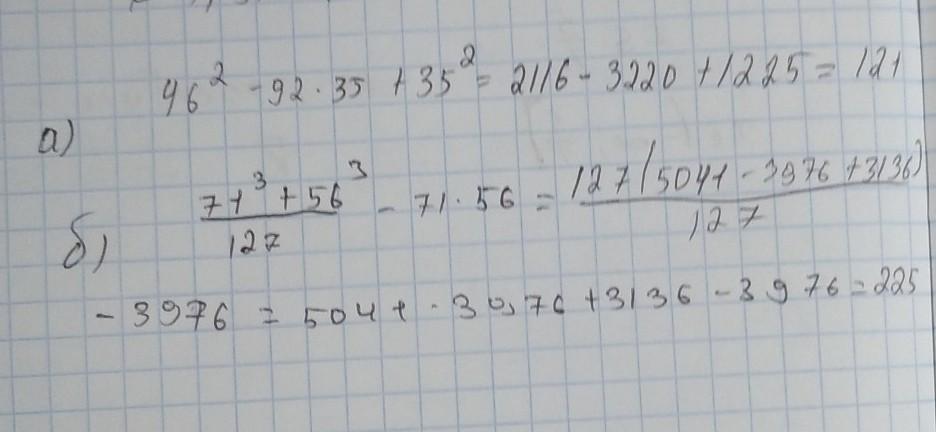 а) 46² - 92 · 35 + 35² = 2116 - 3220 + 1225 = 121
б) (71³ + 56³)/127 - 71 · 56 = 127(5041 - 3976 + 3136)/127
- 3976 = 5041 - 3976 + 3136 - 3976 = 225